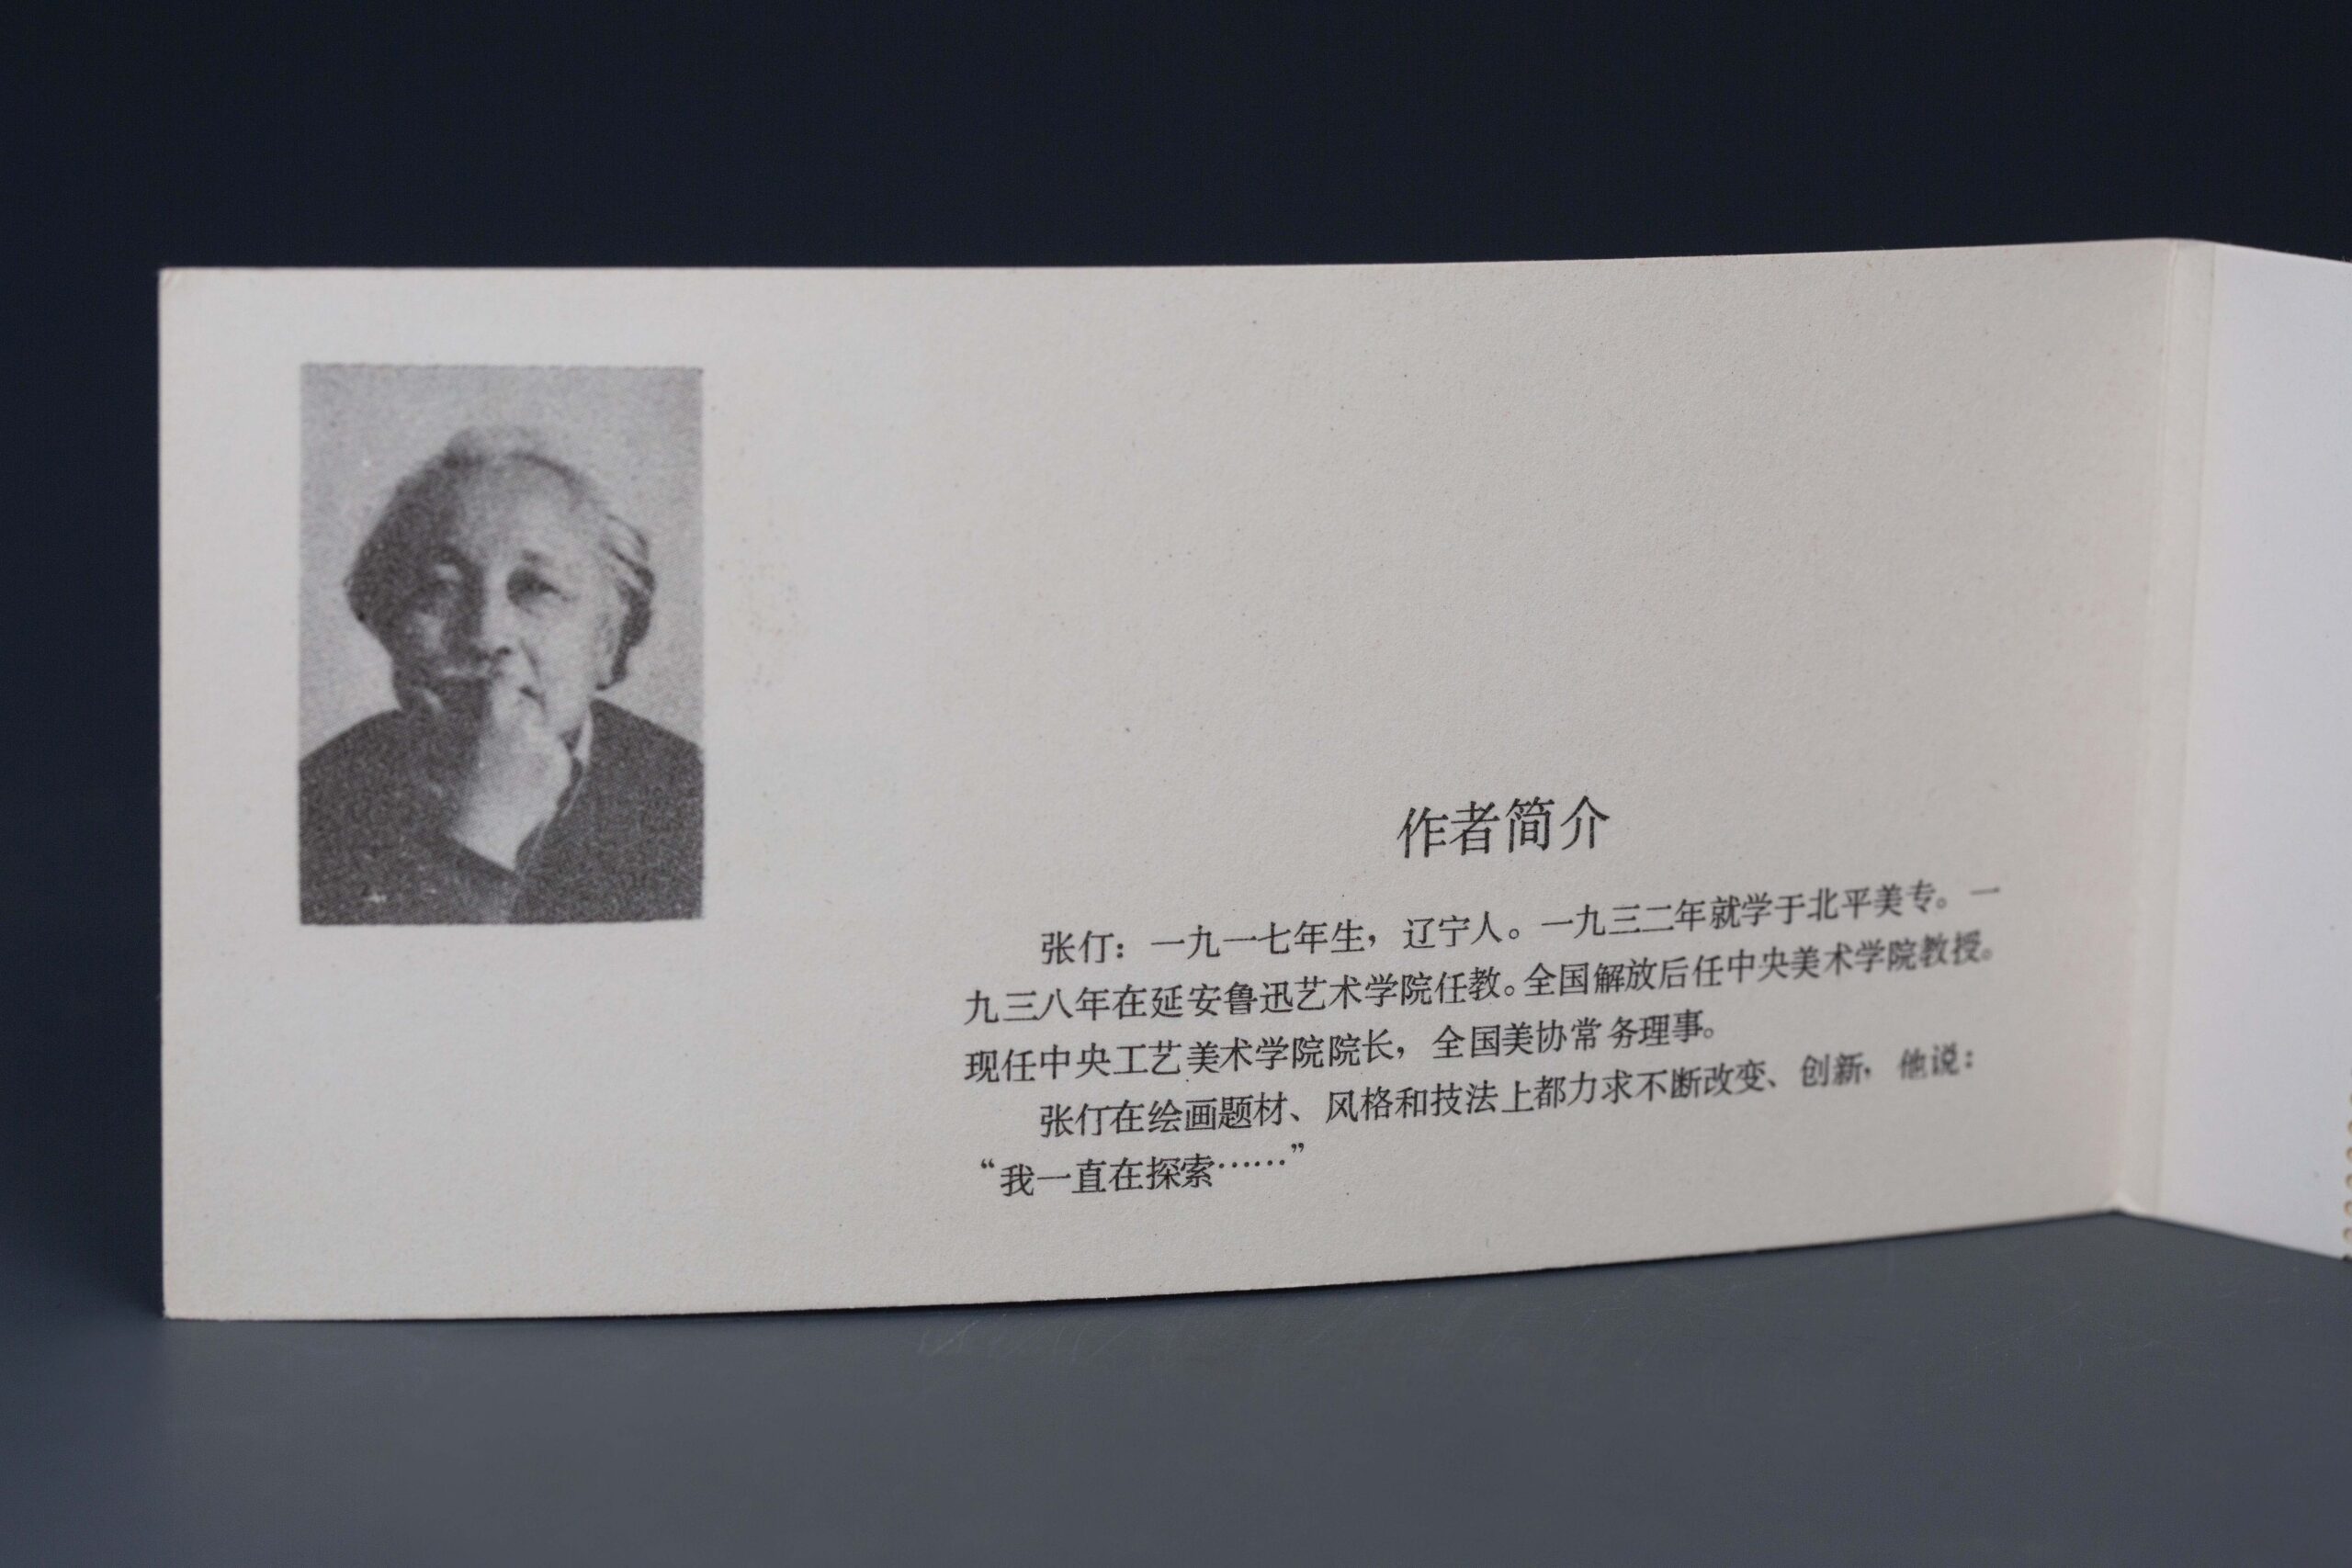 作者简介
张仃：一九一七年生，辽宁人。一九三二年就学于北平美专。一
九三八年在延安鲁迅艺术学院任教。全国解放后任中央美术学院教授。
现任中央工艺美术学院院长，全国美协常务理事。
张仃在绘画题材、风格和技法上都力求不断改变、创新，他说：
“我一直在探索……”